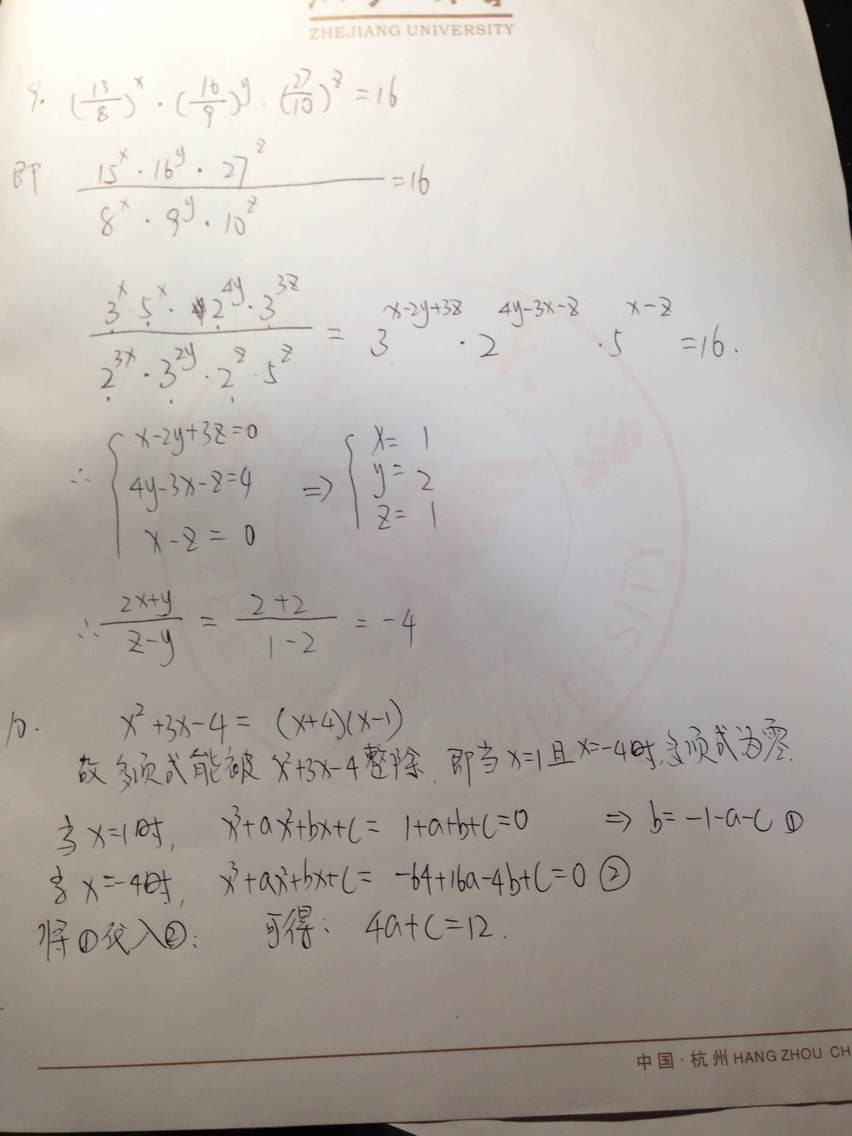 ZHEJIANG UNIVERSITY
9. (15/8)^x · (16/9)^y · (27/10)^z = 16
即 (15^x · 16^y · 27^z)/(8^x · 9^y · 10^z) = 16
(3^x · 5^x · 2^(4y) · 3^(3z))/(2^(3x) · 3^(2y) · 2^z · 5^z) = 3^(x-2y+3z) · 2^(4y-3x-z) · 5^(x-z) = 16.
∴ { x-2y+3z=0 ⇒ { x= 1
4y-3x-z=4 y= 2
x-z = 0 z= 1
∴ (2x+y)/(z-y) = (2+2)/(1-2) = -4
10. x²+3x-4 = (x+4)(x-1)
故多项式能被 x²+3x-4 整除. 即当 x=1 且 x=-4时,多项式为零.
当 x=1时, x³+ax²+bx+c = 1+a+b+c=0 ⇒ b= -1-a-c ①
当 x=-4时, x³+ax²+bx+c= -64+16a-4b+c=0 ②
将①代入②: 可得: 4a+c=12.
中国·杭州 HANG ZHOU CH